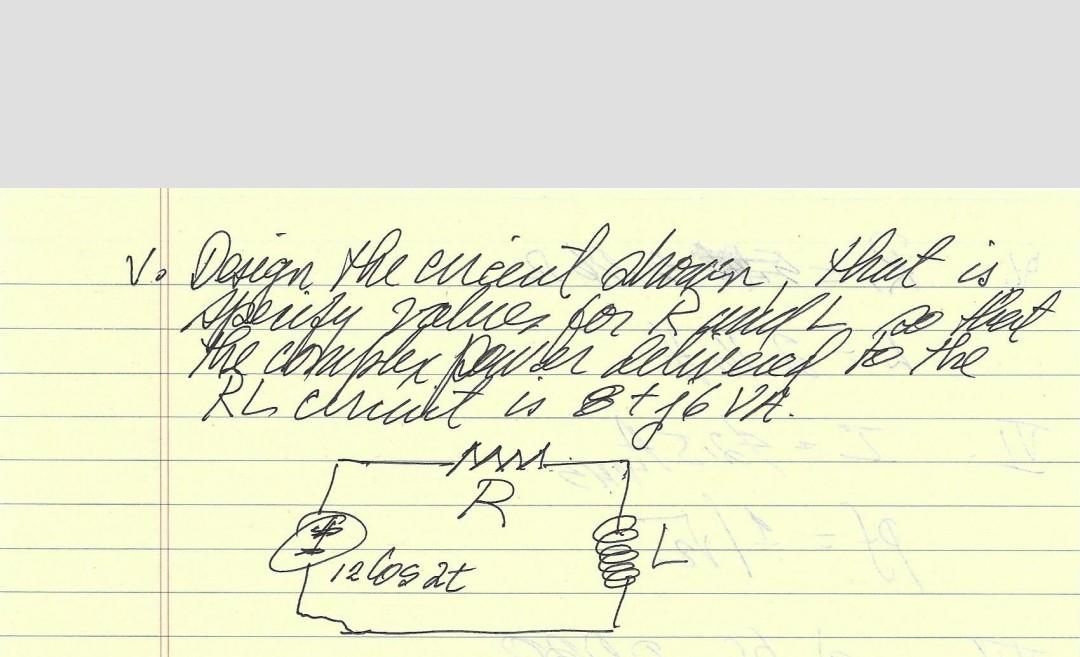 V. Design the circuit shown, that is
specify values for R and L so that
the complex power delivered to the
RL circuit is 8 + j6 VA.
R
L
12 cos 2t